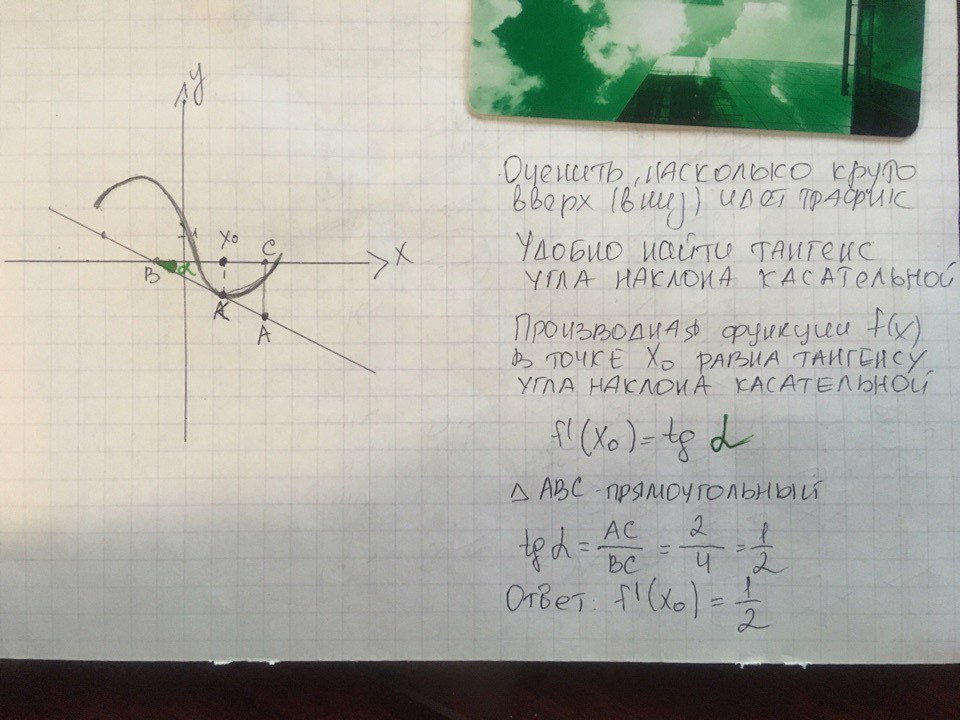 y
1
X₀
C
X
B
α
K
A
Оценить, насколько круто
вверх (вниз) идет график
Удобно найти тангенс
угла наклона касательной
Производная функции f(x)
в точке X₀ равна тангенсу
угла наклона касательной
f'(X₀) = tg α
△ ABC - прямоугольный
tg α = AC/BC = 2/4 = 1/2
Ответ: f'(X₀) = 1/2